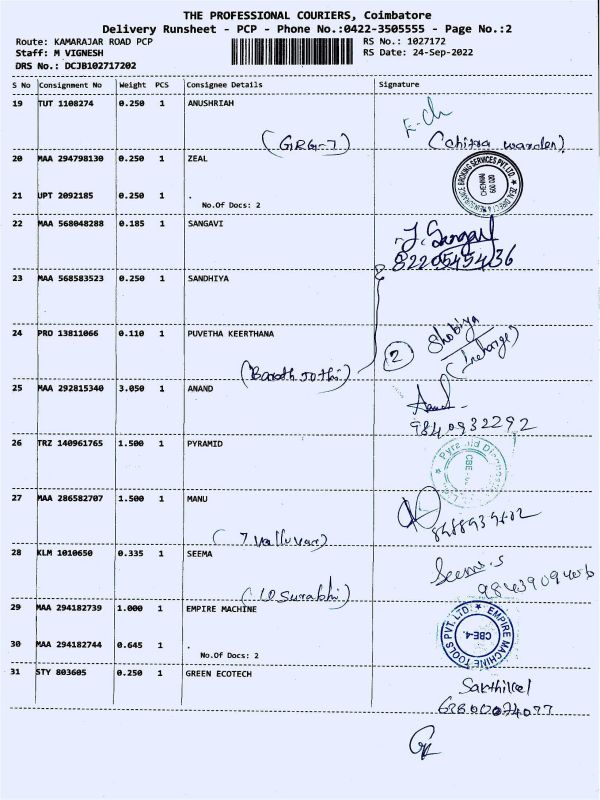 THE PROFESSIONAL COURIERS, Coimbatore
Delivery Runsheet - PCP - Phone No.:0422-3505555 - Page No.:2
Route: KAMARAJAR ROAD PCP
RS No.: 1027172
Staff: M VIGNESH
RS Date: 24-Sep-2022
DRS No.: DCJB102717202
S No Consignment No Weight PCS Consignee Details Signature
19 TUT 1108274 0.250 1 ANUSHRIAH
(GRG-7) (Chitra warden)
20 MAA 294798130 0.250 1 ZEAL
CHENNAI 600 020
21 UPT 2092185 0.250 1 .
No.Of Docs: 2
22 MAA 568048288 0.185 1 SANGAVI
8220545436
23 MAA 568583523 0.250 1 SANDHIYA
24 PRO 13811066 0.110 1 PUVETHA KEERTHANA
2 Shobiya
(Incharge)
25 MAA 292815340 3.050 1 ANAND
9840932292
26 TRZ 140961765 1.500 1 PYRAMID
27 MAA 286582707 1.500 1 MANU
(7 Valluvar)
28 KLM 1010650 0.335 1 SEEMA
Seema.s
(10 Surabhi)
29 MAA 294182739 1.000 1 EMPIRE MACHINE
EMPIRE MACHINE TOOLS PVT. LTD. CBE-4.
30 MAA 294182744 0.645 1 .
No.Of Docs: 2
31 STY 803605 0.250 1 GREEN ECOTECH
Sakthivel